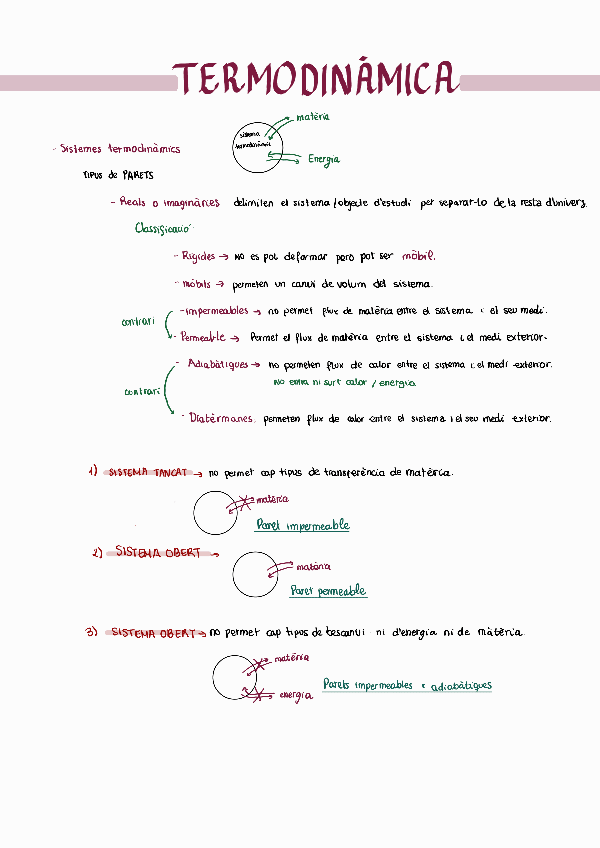 TERMODINÀMICA
matèria
sistema
termodinàmic
- Sistemes termodinàmics
Energia
TIPUS de PARETS
- Reals o imaginàries delimiten el sistema/objecte d'estudi per separar-lo de la resta d'univers.
Classificació
- Rígides → no es pot deformar però pot ser mòbil.
- mòbils → permeten un canvi de volum del sistema.
- impermeables → no permet flux de matèria entre el sistema i el seu medi.
contrari
- Permeable → Permet el flux de matèria entre el sistema i el medi exterior.
- Adiabàtiques → no permeten flux de calor entre el sistema i el medi exterior.
No entra ni surt calor / energia
contrari
- Diatèrmanes, permeten flux de calor entre el sistema i el seu medi exterior.
1) SISTEMA TANCAT → no permet cap tipus de transferència de matèria.
matèria
Paret impermeable
2) SISTEMA OBERT →
matèria
Paret permeable
3) SISTEMA OBERT → no permet cap tipus de bescanvi ni d'energia ni de matèria.
matèria
Parets impermeables i adiabàtiques
energia